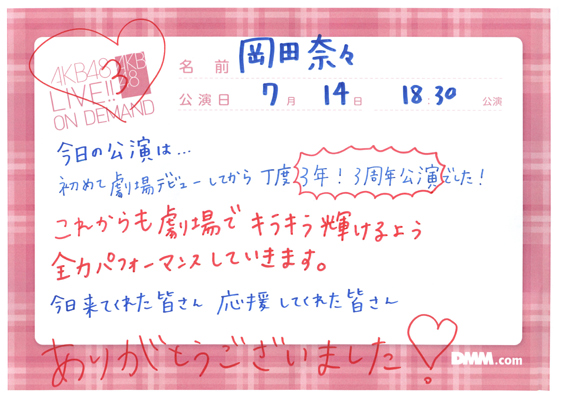 AKB48
AKB
48
LIVE!!
ON DEMAND
3
名前 岡田奈々
公演日 7月 14日 18:30 公演
今日の公演は…
初めて劇場デビューしてから 丁度 3年！3周年公演でした！
これからも劇場でキラキラ輝けるよう
全力パフォーマンスしていきます。
今日来てくれた皆さん 応援してくれた皆さん
ありがとうございました!
DMM.com